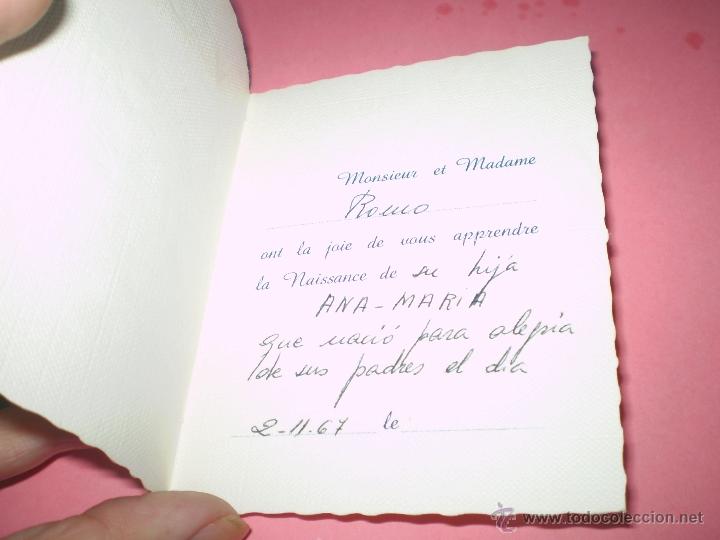 Monsieur et Madame
Romo
ont la joie de vous apprendre
la Naissance de su hija
ANA-MARIA
que nació para alegria
de sus padres el dia
2-11-67 le
www.todocoleccion.net